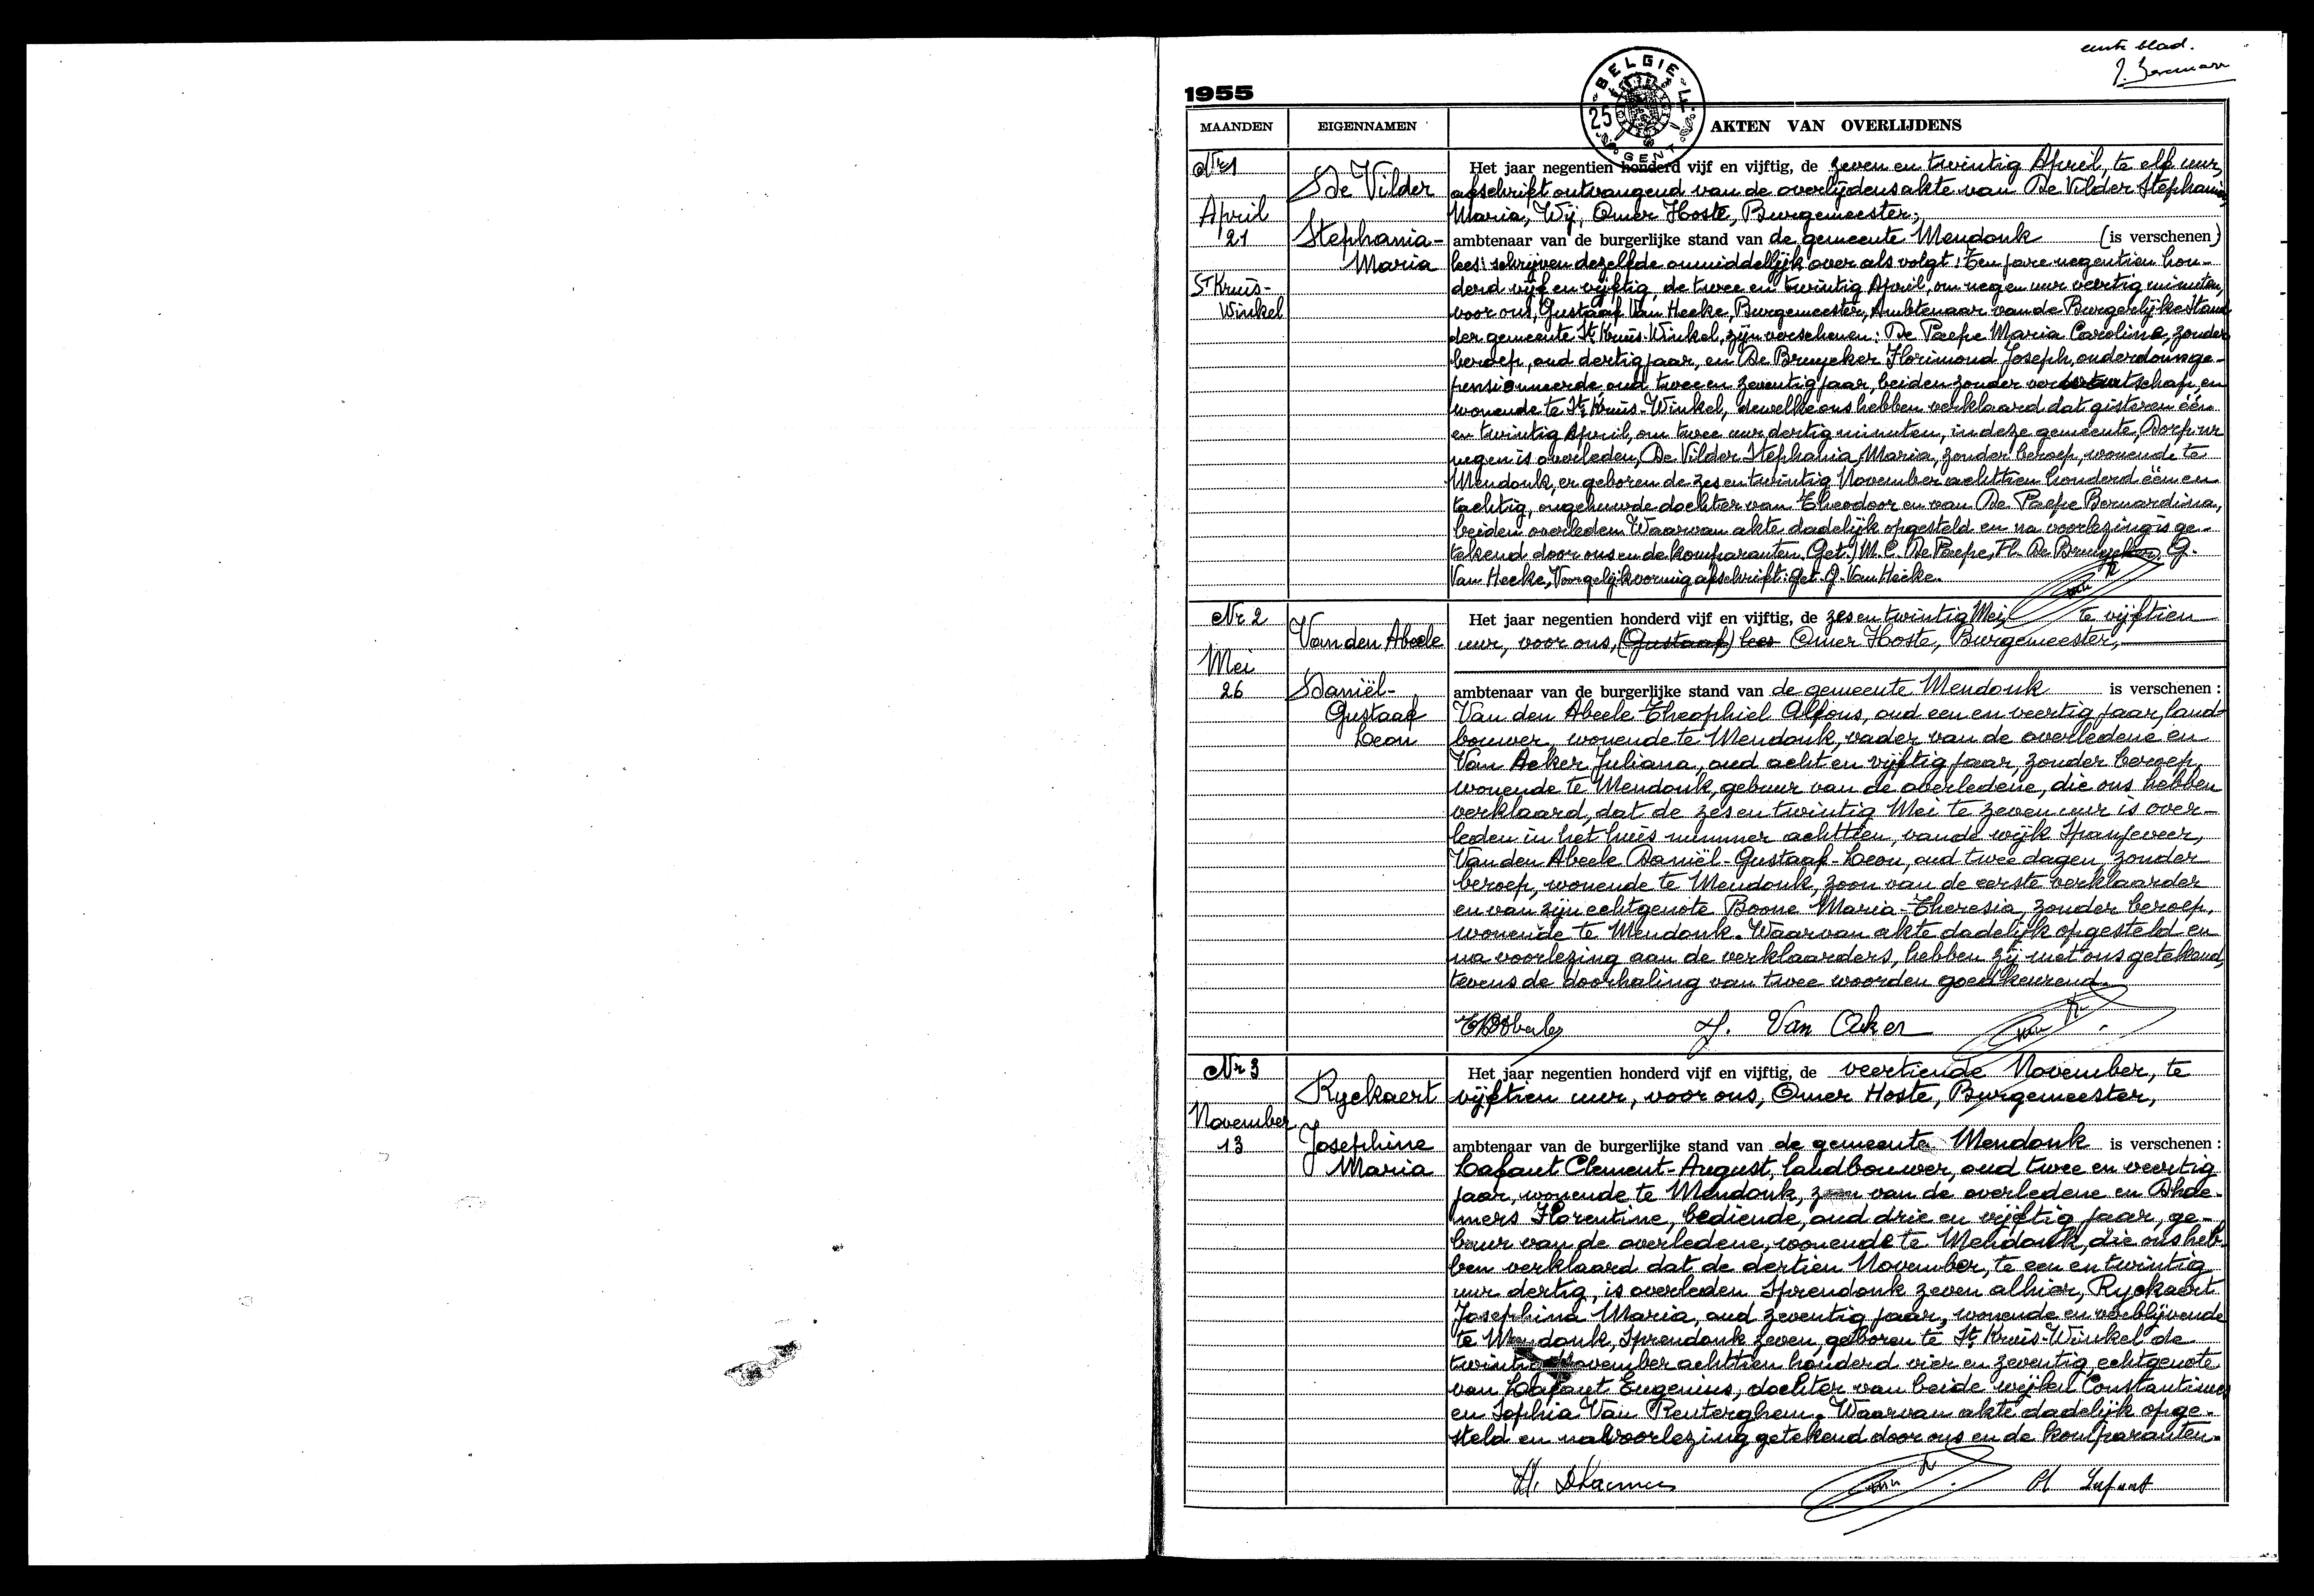 eerste blad.
1955
BELGIE
25
GENT
MAANDEN
EIGENNAMEN
AKTEN VAN OVERLIJDENS
Nr 1
April
21
St Kruis-
Winkel
De Vilder
Stephania-
Maria
Het jaar negentien honderd vijf en vijftig, de zeven en twintig April, te elf uur,
afschrift ontvangend van de overlijdensakte van De Vilder Stephania
Maria, Wij, Omer Hoste, Burgemeester,
ambtenaar van de burgerlijke stand van de gemeente Mendonk (is verschenen)
lees: schrijven dezelfde onmiddellijk over als volgt: Ten jare negentien hon-
derd vijf en vijftig, de twee en twintig April, om negen uur veertig minuten,
voor ons, Gustaaf Van Hecke, Burgemeester, Ambtenaar van de Burgerlijke Stand
der gemeente St Kruis-Winkel, zijn verschenen: De Paepe Maria Carolina, zonder
beroep, oud dertig jaar, en De Bruycker Florimond Joseph, ouderdomsge-
pensionneerde, oud twee en zeventig jaar, beiden zonder verwantschap, en
wonende te St Kruis-Winkel, dewelke ons hebben verklaard dat gisteren één
en twintig April, om twee uur dertig minuten, in deze gemeente, Dorp nr
negen is overleden, De Vilder Stephania, Maria, zonder beroep, wonende te
Mendonk, er geboren de zes en twintig November achttien honderd één en
tachtig, ongehuwde dochter van Theodoor en van De Paepe Bernardina,
beiden overleden. Waarvan akte dadelijk opgesteld en na voorlezing is ge-
tekend door ons en de komparanten. Get.) M. C. De Paepe, Fl. De Bruycker, G.
Van Hecke, Voor gelijkvormig afschrift: get. G. Van Hecke.
Nr 2
Mei
26
Van den Abeele
Daniël-
Gustaaf
Leon
Het jaar negentien honderd vijf en vijftig, de zes en twintig Mei, te vijftien
uur, voor ons, (Gustaaf) lees Omer Hoste, Burgemeester,
ambtenaar van de burgerlijke stand van de gemeente Mendonk is verschenen :
Van den Abeele Theophiel Alfons, oud een en veertig jaar, land-
bouwer, wonende te Mendonk, vader van de overledene en
Van Acker Juliana, oud acht en vijftig jaar, zonder beroep,
wonende te Mendonk, gebuur van de overledene, die ons hebben
verklaard, dat de zes en twintig Mei te zeven uur is over-
leden in het huis nummer achttien, van de wijk Spanjeveer,
Van den Abeele Daniël-Gustaaf-Leon, oud twee dagen, zonder
beroep, wonende te Mendonk, zoon van de eerste verklaarder
en van zijn echtgenote Boone Maria-Theresia, zonder beroep,
wonende te Mendonk. Waarvan akte dadelijk opgesteld en
na voorlezing aan de verklaarders, hebben zij met ons getekend,
tevens de doorhaling van twee woorden goedkeurend.
J. Van Acker
Nr 3
November
13
Ryckaert
Josephine
Maria
Het jaar negentien honderd vijf en vijftig, de veertiende November, te
vijftien uur, voor ons, Omer Hoste, Burgemeester,
ambtenaar van de burgerlijke stand van de gemeente Mendonk is verschenen :
Lafaut Clement-August, landbouwer, oud twee en veertig
jaar, wonende te Mendonk, zoon van de overledene en Dhae-
mers Florentine, bediende, oud drie en vijftig jaar, ge-
buur van de overledene, wonende te Mendonk, die ons heb-
ben verklaard dat de dertien November, te een en twintig
uur dertig, is overleden Sprendonk zeven alhier, Ryckaert
Josephina Maria, oud zeventig jaar, wonende en verblijvende
te Mendonk, Sprendonk zeven, geboren te St Kruis-Winkel de
twintig November achttien honderd vier en zeventig, echtgenote
van Lafaut Eugenius, dochter van beide wijlen Constantinus
en Sophia Van Renterghem. Waarvan akte dadelijk opge-
steld en na voorlezing getekend door ons en de komparanten.
Fl. Dhaemers
Cl Lafaut